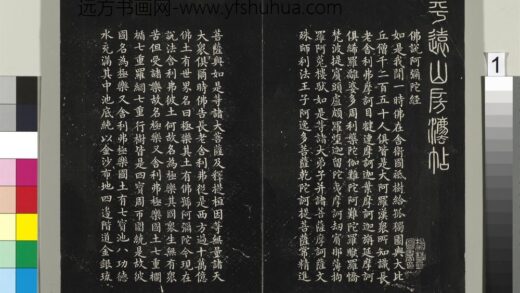 远方书画网-www.yfshuhua.com
平遠山房灋帖
佛說阿彌陀經
如是我聞一時佛在舍衛國祇樹給孤獨園與大比
丘僧千二百五十人俱皆是大阿羅漢衆所知識長
老舍利弗摩訶目犍連摩訶迦葉摩訶迦旃延摩訶
俱絺羅離婆多周利槃陀伽難陀阿難陀羅睺羅憍
梵波提賓頭盧頗羅墮迦留陀夷摩訶劫賓那薄拘
羅阿㝹樓馱如是等諸大弟子并諸菩薩摩訶薩文
殊師利法王子阿逸多菩薩乾陀訶提菩薩常精進
菩薩與如是等諸大菩薩及釋提桓因等無量諸天
大衆俱爾時佛告長老舍利弗從是西方過十萬億
佛土有世界名曰極樂其土有佛號阿彌陀今現在
說法舍利弗彼土何故名爲極樂其國衆生無有衆
苦但受諸樂故名極樂又舍利弗極樂國土七重欄
楯七重羅網七重行樹皆是四寶周帀圍繞是故彼
國名爲極樂又舍利弗極樂國土有七寶池八功德
水充滿其中池底純以金沙布地四邊階道金銀琉
1